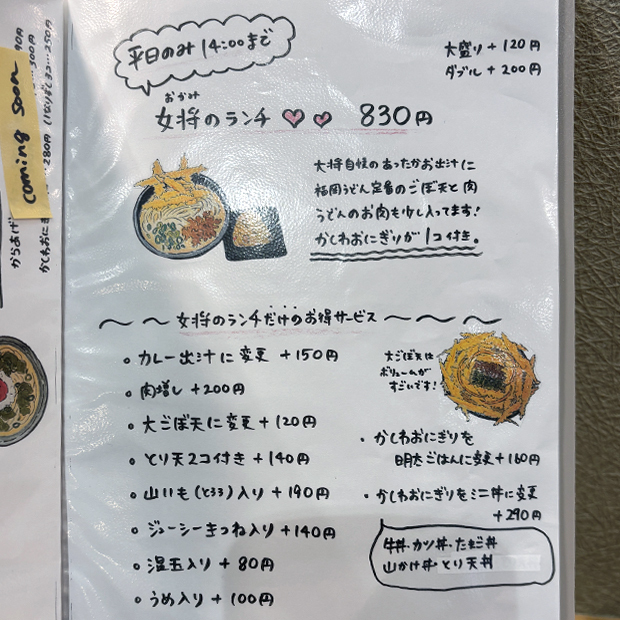 平日のみ 14:00まで
大盛り+120円
ダブル+200円
おかみ
女将のランチ 830円
大将自慢のあったかお出汁に
福岡うどん定番のごぼ天と肉
うどんのお肉も少し入ってます!
かしわおにぎりが1コ付き。
女将のランチだけのお得サービス
・カレー出汁に変更 +150円
・肉増し +200円
・大ごぼ天に変更 +120円
・とり天2コ付き +140円
・山いも(とろろ)入り +190円
・ジューシーきつね入り +140円
・温玉入り +80円
・うめ入り +100円
大ごぼ天は
ボリュームが
すごいです!
・かしわおにぎりを
明太ごはんに変更 +160円
・かしわおにぎりをミニ丼に変更
+290円
牛丼・カツ丼・たまご丼
山かけ丼・とり天丼
coming soon
からあげ
280円
250円